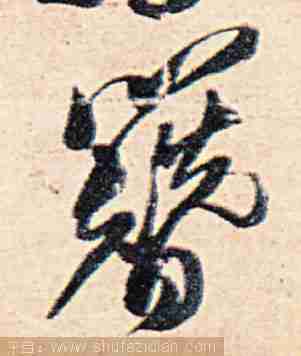 簪
来自：www.shufazidian.com